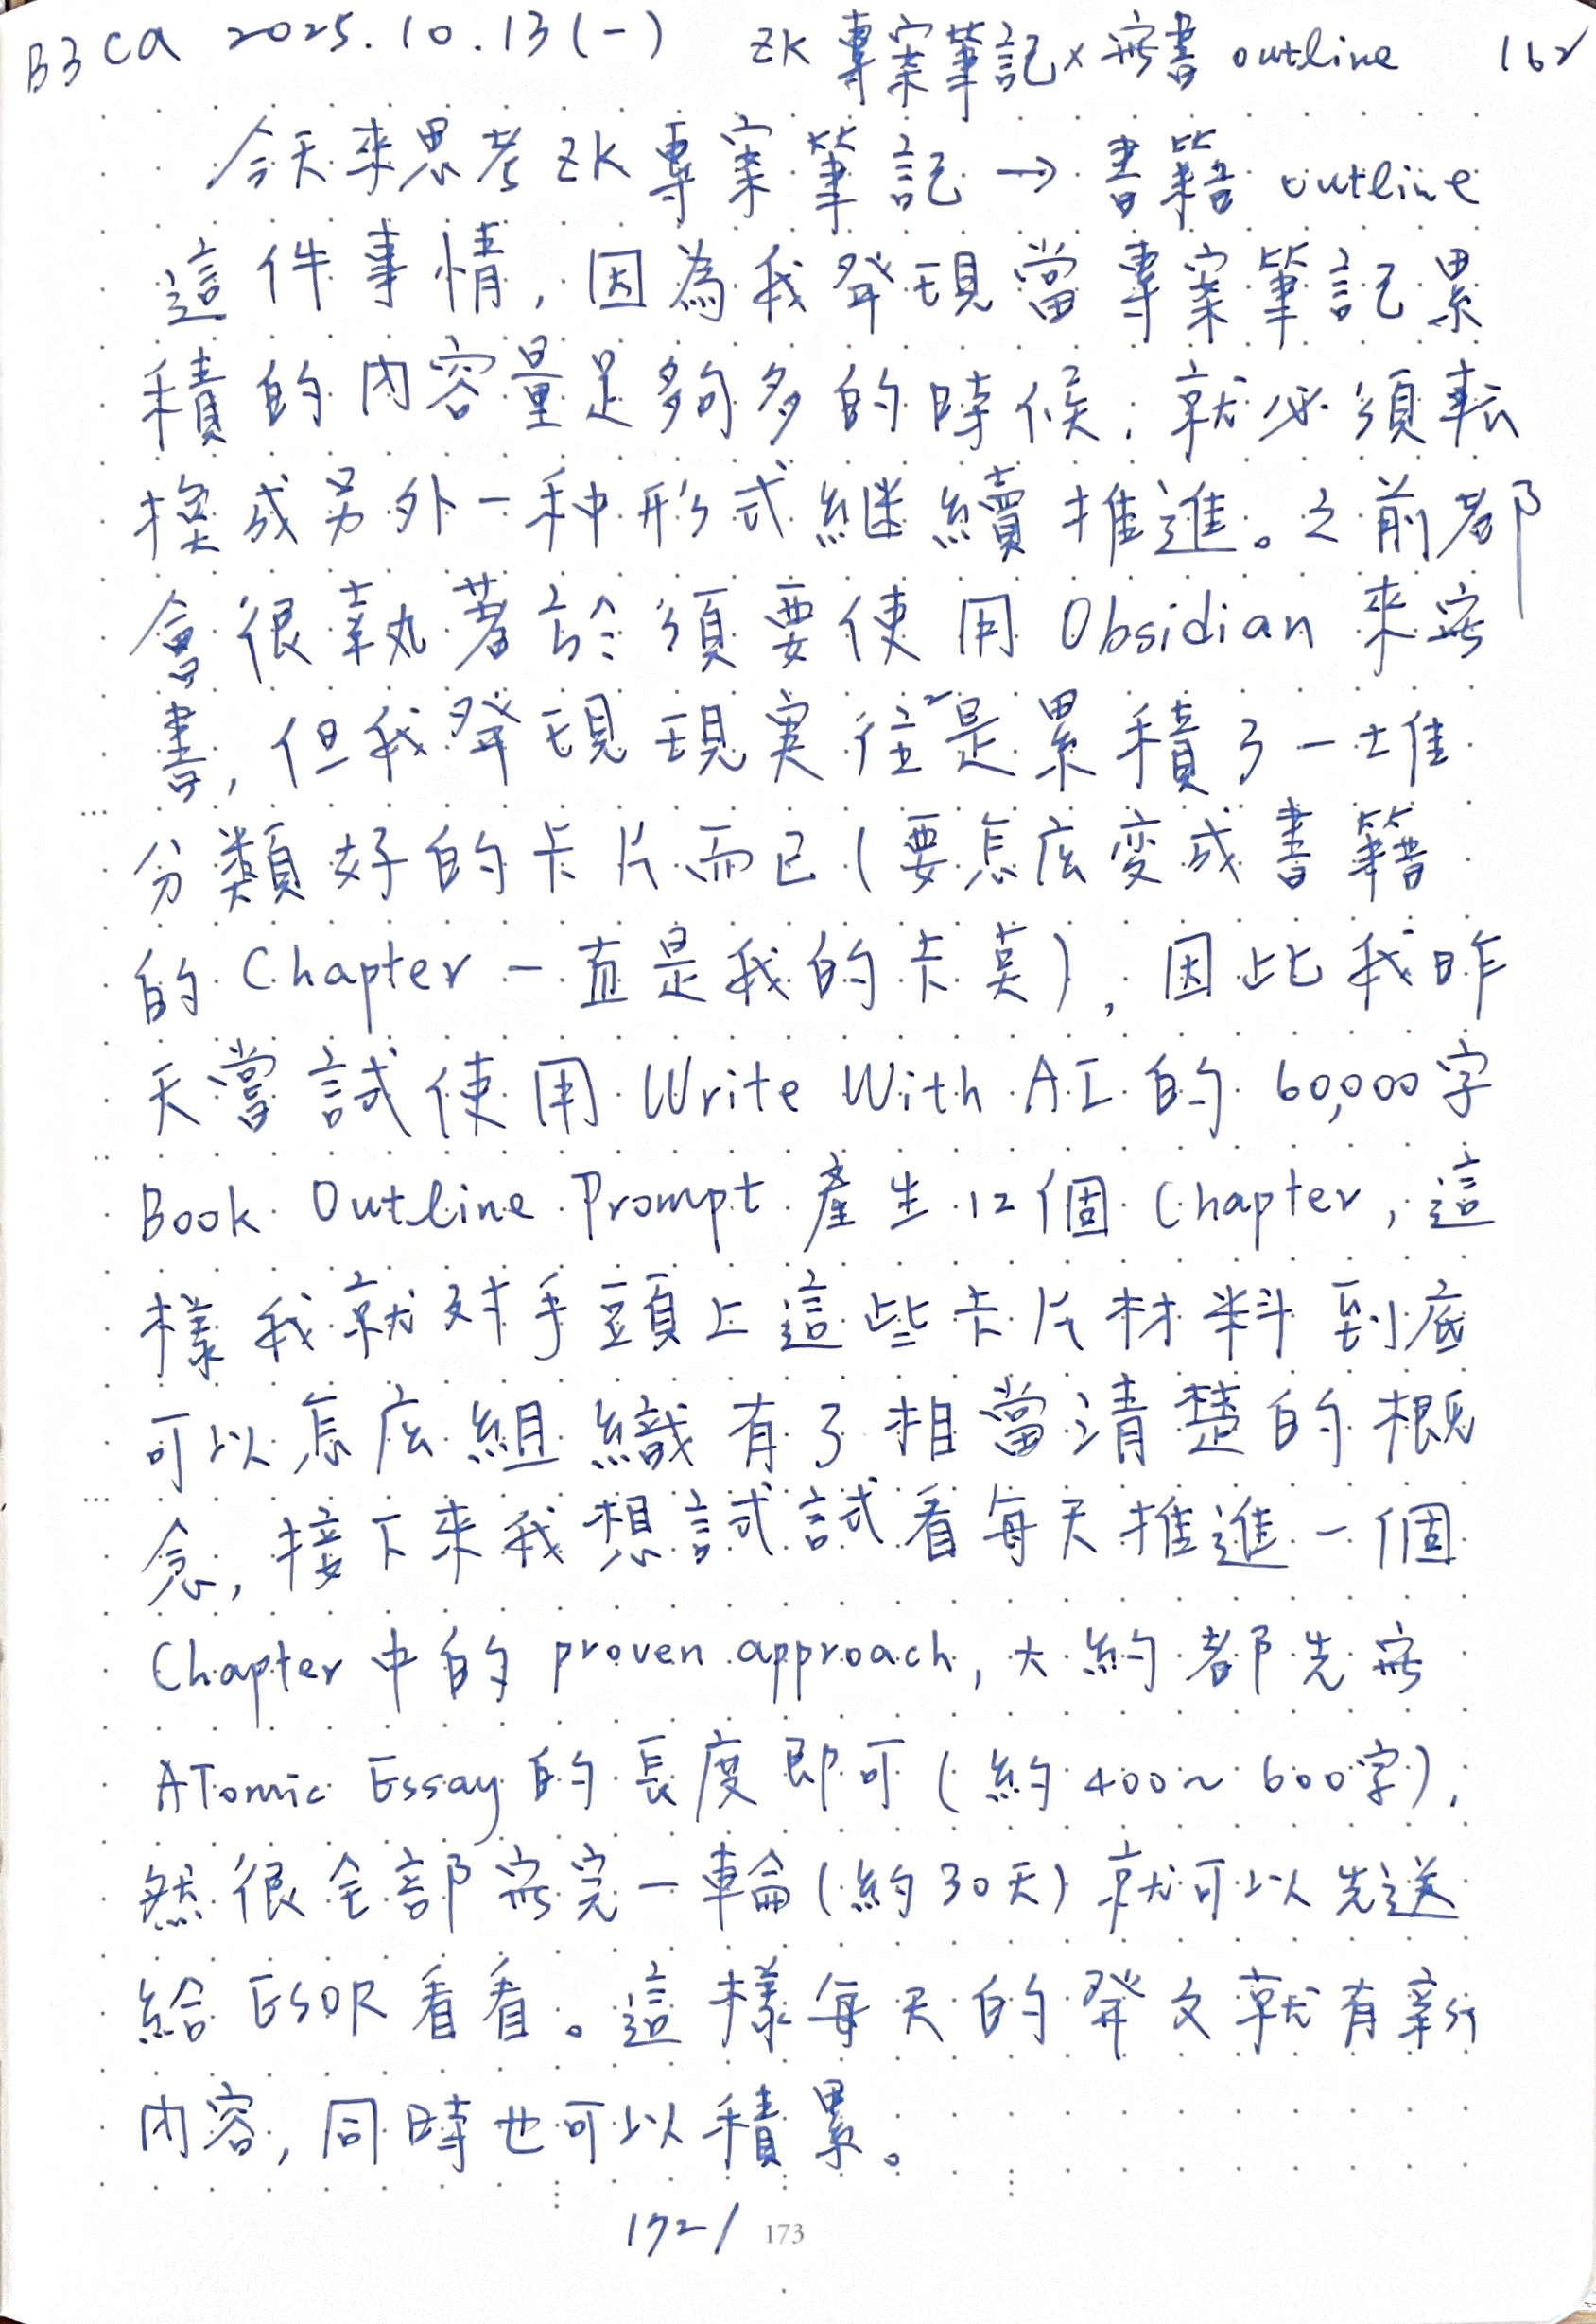 B3ca 2025.10.13(一) ZK 專案筆記×寫書 outline 162
今天來思考ZK專案筆記→書籍 outline
這件事情,因為我發現當專案筆記累
積的內容量足夠多的時候,就必須転
換成另外一种形式継續推進。之前都
會很執著於須要使用Obsidian來寫
書,但我發現現実往々是累積了一堆
分類好的卡片而已(要怎麼变成書籍
的Chapter一直是我的卡关),因此我昨
天嘗試使用Write With AI的60,000字
Book Outline Prompt產生12個Chapter,這
樣我就対手頭上這些卡片材料到底
可以怎麼組織有了相當清楚的概
念,接下來我想試試看每天推進一個
Chapter中的proven approach,大約都先寫
ATomic Essay的長度即可(約400~600字),
然很全部寫完一輪(約30天)就可以先送
給ESOR看看。這樣每天的發文就有新
內容,同時也可以積累。
172/ 173